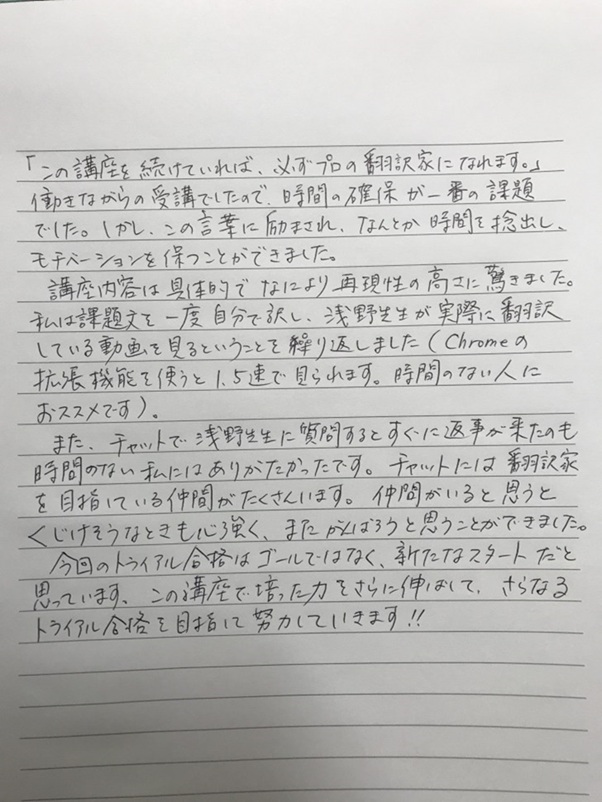 「この講座を続けていれば、必ずプロの翻訳家になれます。」
働きながらの受講でしたので、時間の確保が一番の課題
でした。しかし、この言葉に励まされ、なんとか時間を捻出し、
モチベーションを保つことができました。
講座内容は具体的でなにより再現性の高さに驚きました。
私は課題文を一度自分で訳し、浅野先生が実際に翻訳
している動画を見るということを繰り返しました（Chromeの
拡張機能を使うと1.5速で見られます。時間のない人に
おススメです）。
また、チャットで浅野先生に質問するとすぐに返事が来たのも
時間のない私にはありがたかったです。チャットには翻訳家
を目指している仲間がたくさんいます。仲間がいると思うと
くじけそうなときも心強く、またがんばろうと思うことができました。
今回のトライアル合格はゴールではなく、新たなスタートだと
思っています、この講座で培った力をさらに伸ばして、さらなる
トライアル合格を目指して努力していきます!!